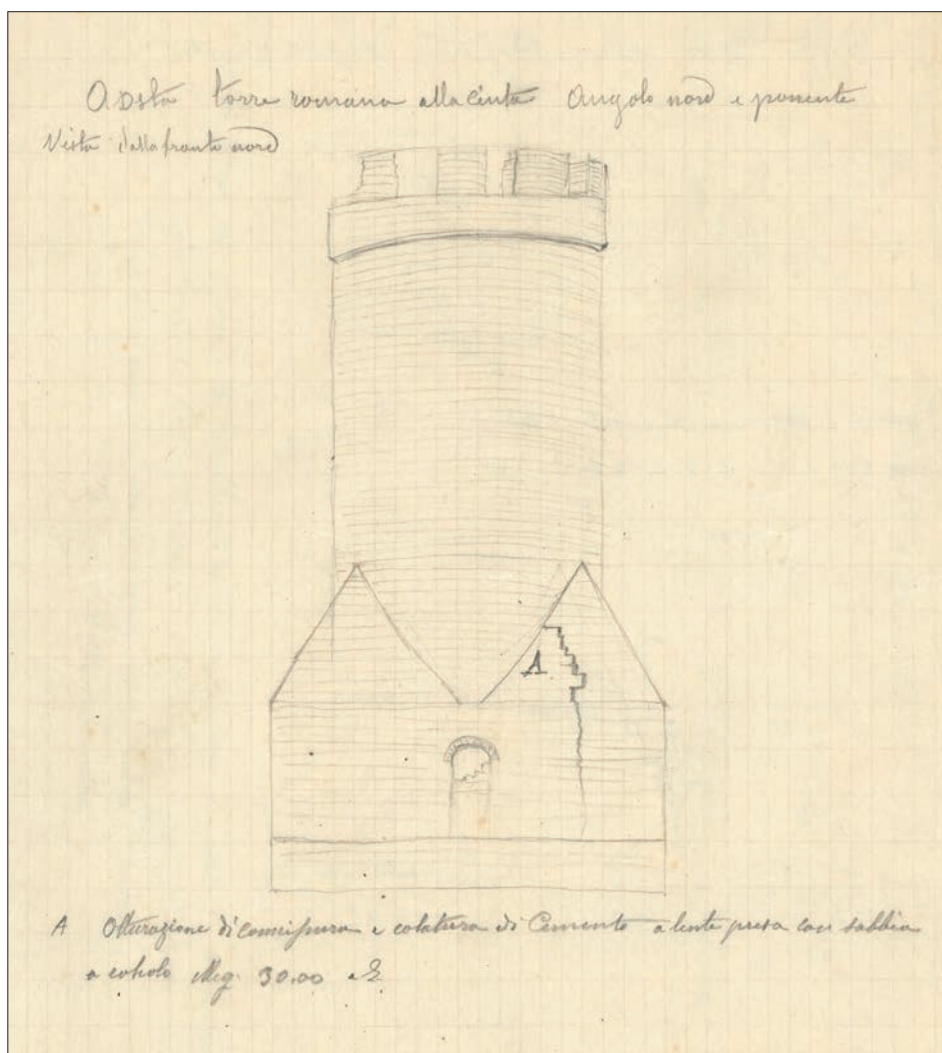 Aosta torre romana alla cinta Angolo nord e ponente
Vista dalla fronte nord
A
A Otturazione di commissura e colatura di Cemento a lenta presa con sabbia
a Mq. 30.00